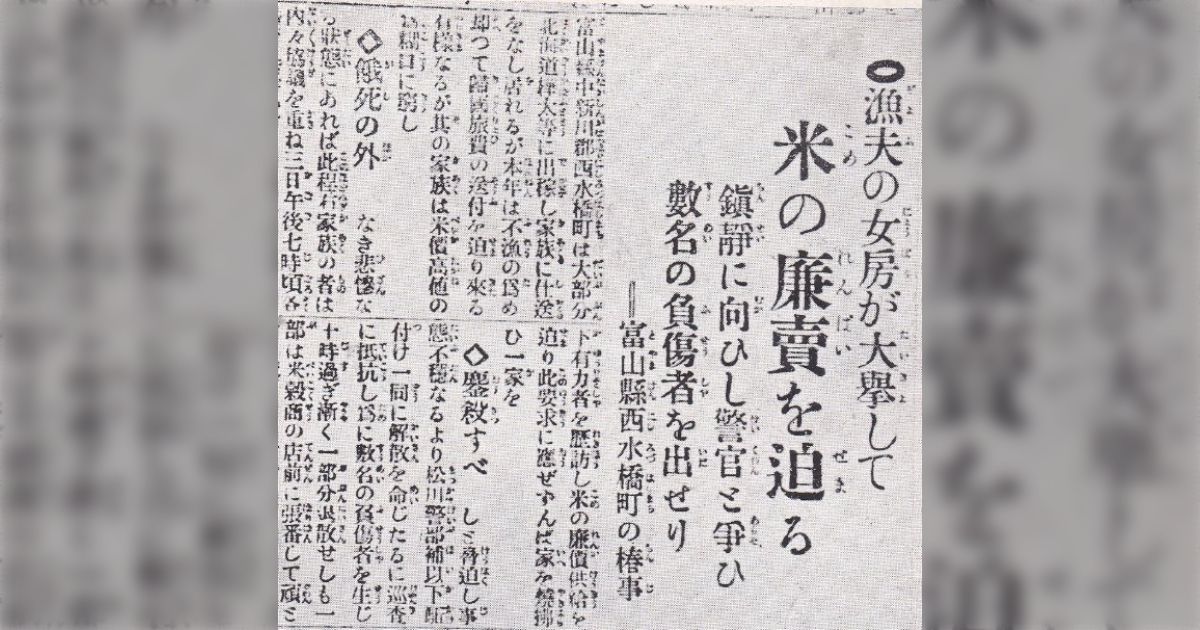 漁夫の女房が大擧して
米の廉賣を迫る
鎭靜に向ひし警官と爭ひ
數名の負傷者を出せり
＝富山縣西水橋町の椿事
富山縣中新川郡西水橋町は大部分
北海道樺太等に出稼し家族に仕送
をなし居れるが本年は不漁の爲め
却つて歸國旅費の送付を迫り來る
有樣なるが其の家族は米價高値の
爲糊口に窮し
◇餓死の外 なき悲慘な
る狀態にあれば此程石家族の者は
內々協議を重ね三日午後七時頃各
有力者を歷訪し米の廉價供給を
迫り此要求に應ぜずんば家を燒拂
ひ一家を
◇鏖殺すべ しと脅迫し事
態不穩なるより松川警部補以下駐
付け一同に解散を命じたるに巡査
に抵抗し爲に數名の負傷者を生じ
十時過ぎ漸く一部分退散せしも一
部は米穀商の店前に張番して頑と